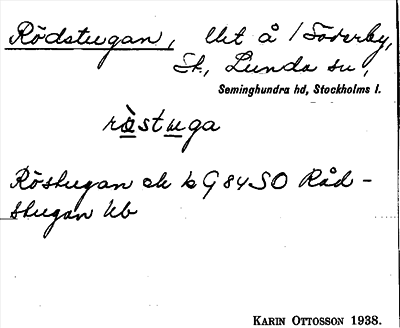 Rödstugan, Utt å 1 Söderby,
Sk, Lunda sn,
Seminghundra hd, Stockholms l.
röstuga
Röstugan ek b G 84 SO Råd-
stugan kb
KARIN OTTOSSON 1938.